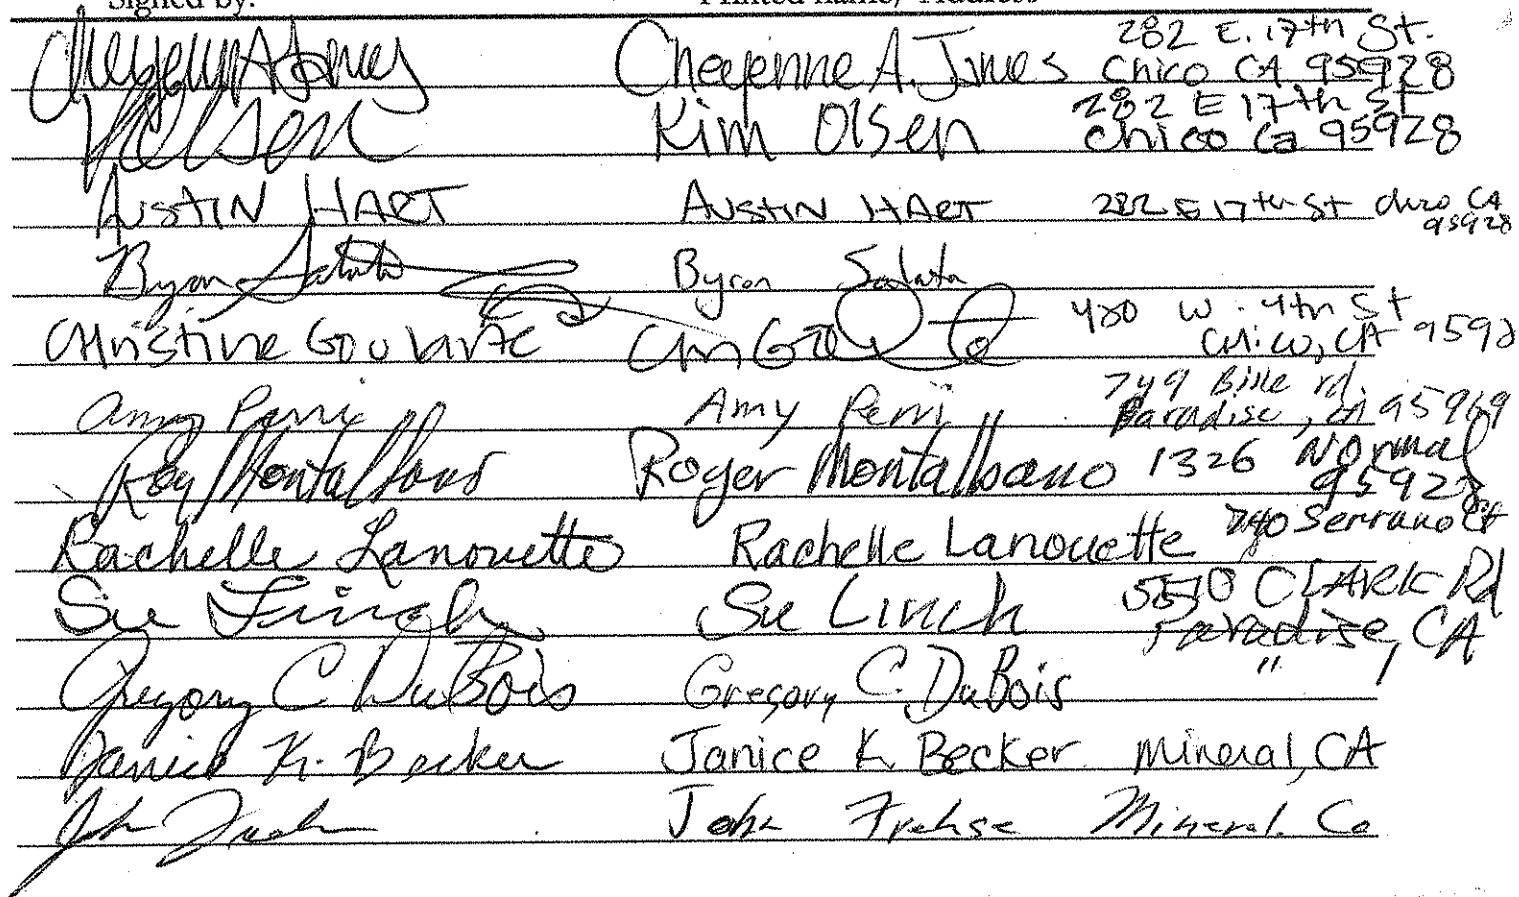 Signed by: Printed name/ Address
Cheyenne A. Jones 282 E. 17th St.
Chico CA 95928
KOlsen Kim Olsen 282 E 17th St
Chico Ca 95928
AUSTIN HART AUSTIN HART 282 E 17th St Chico CA
95928
Byron Salata Byron Salata
Christine Goulart 480 W. 4th St
Chico, CA 9592
Amy Perri Amy Perri 749 Bille rd
Paradise, CA 95969
Roger Montalbano 1326 Normal
95928
Rachelle Lanouette Rachelle Lanouette Serrano Ct
Sue Linch Sue Linch CLARK Rd
Paradise, CA
Gregory C. DuBois Gregory C. DuBois "
Janice K. Becker Janice K. Becker Mineral, CA
John Frehse Mineral. Ca